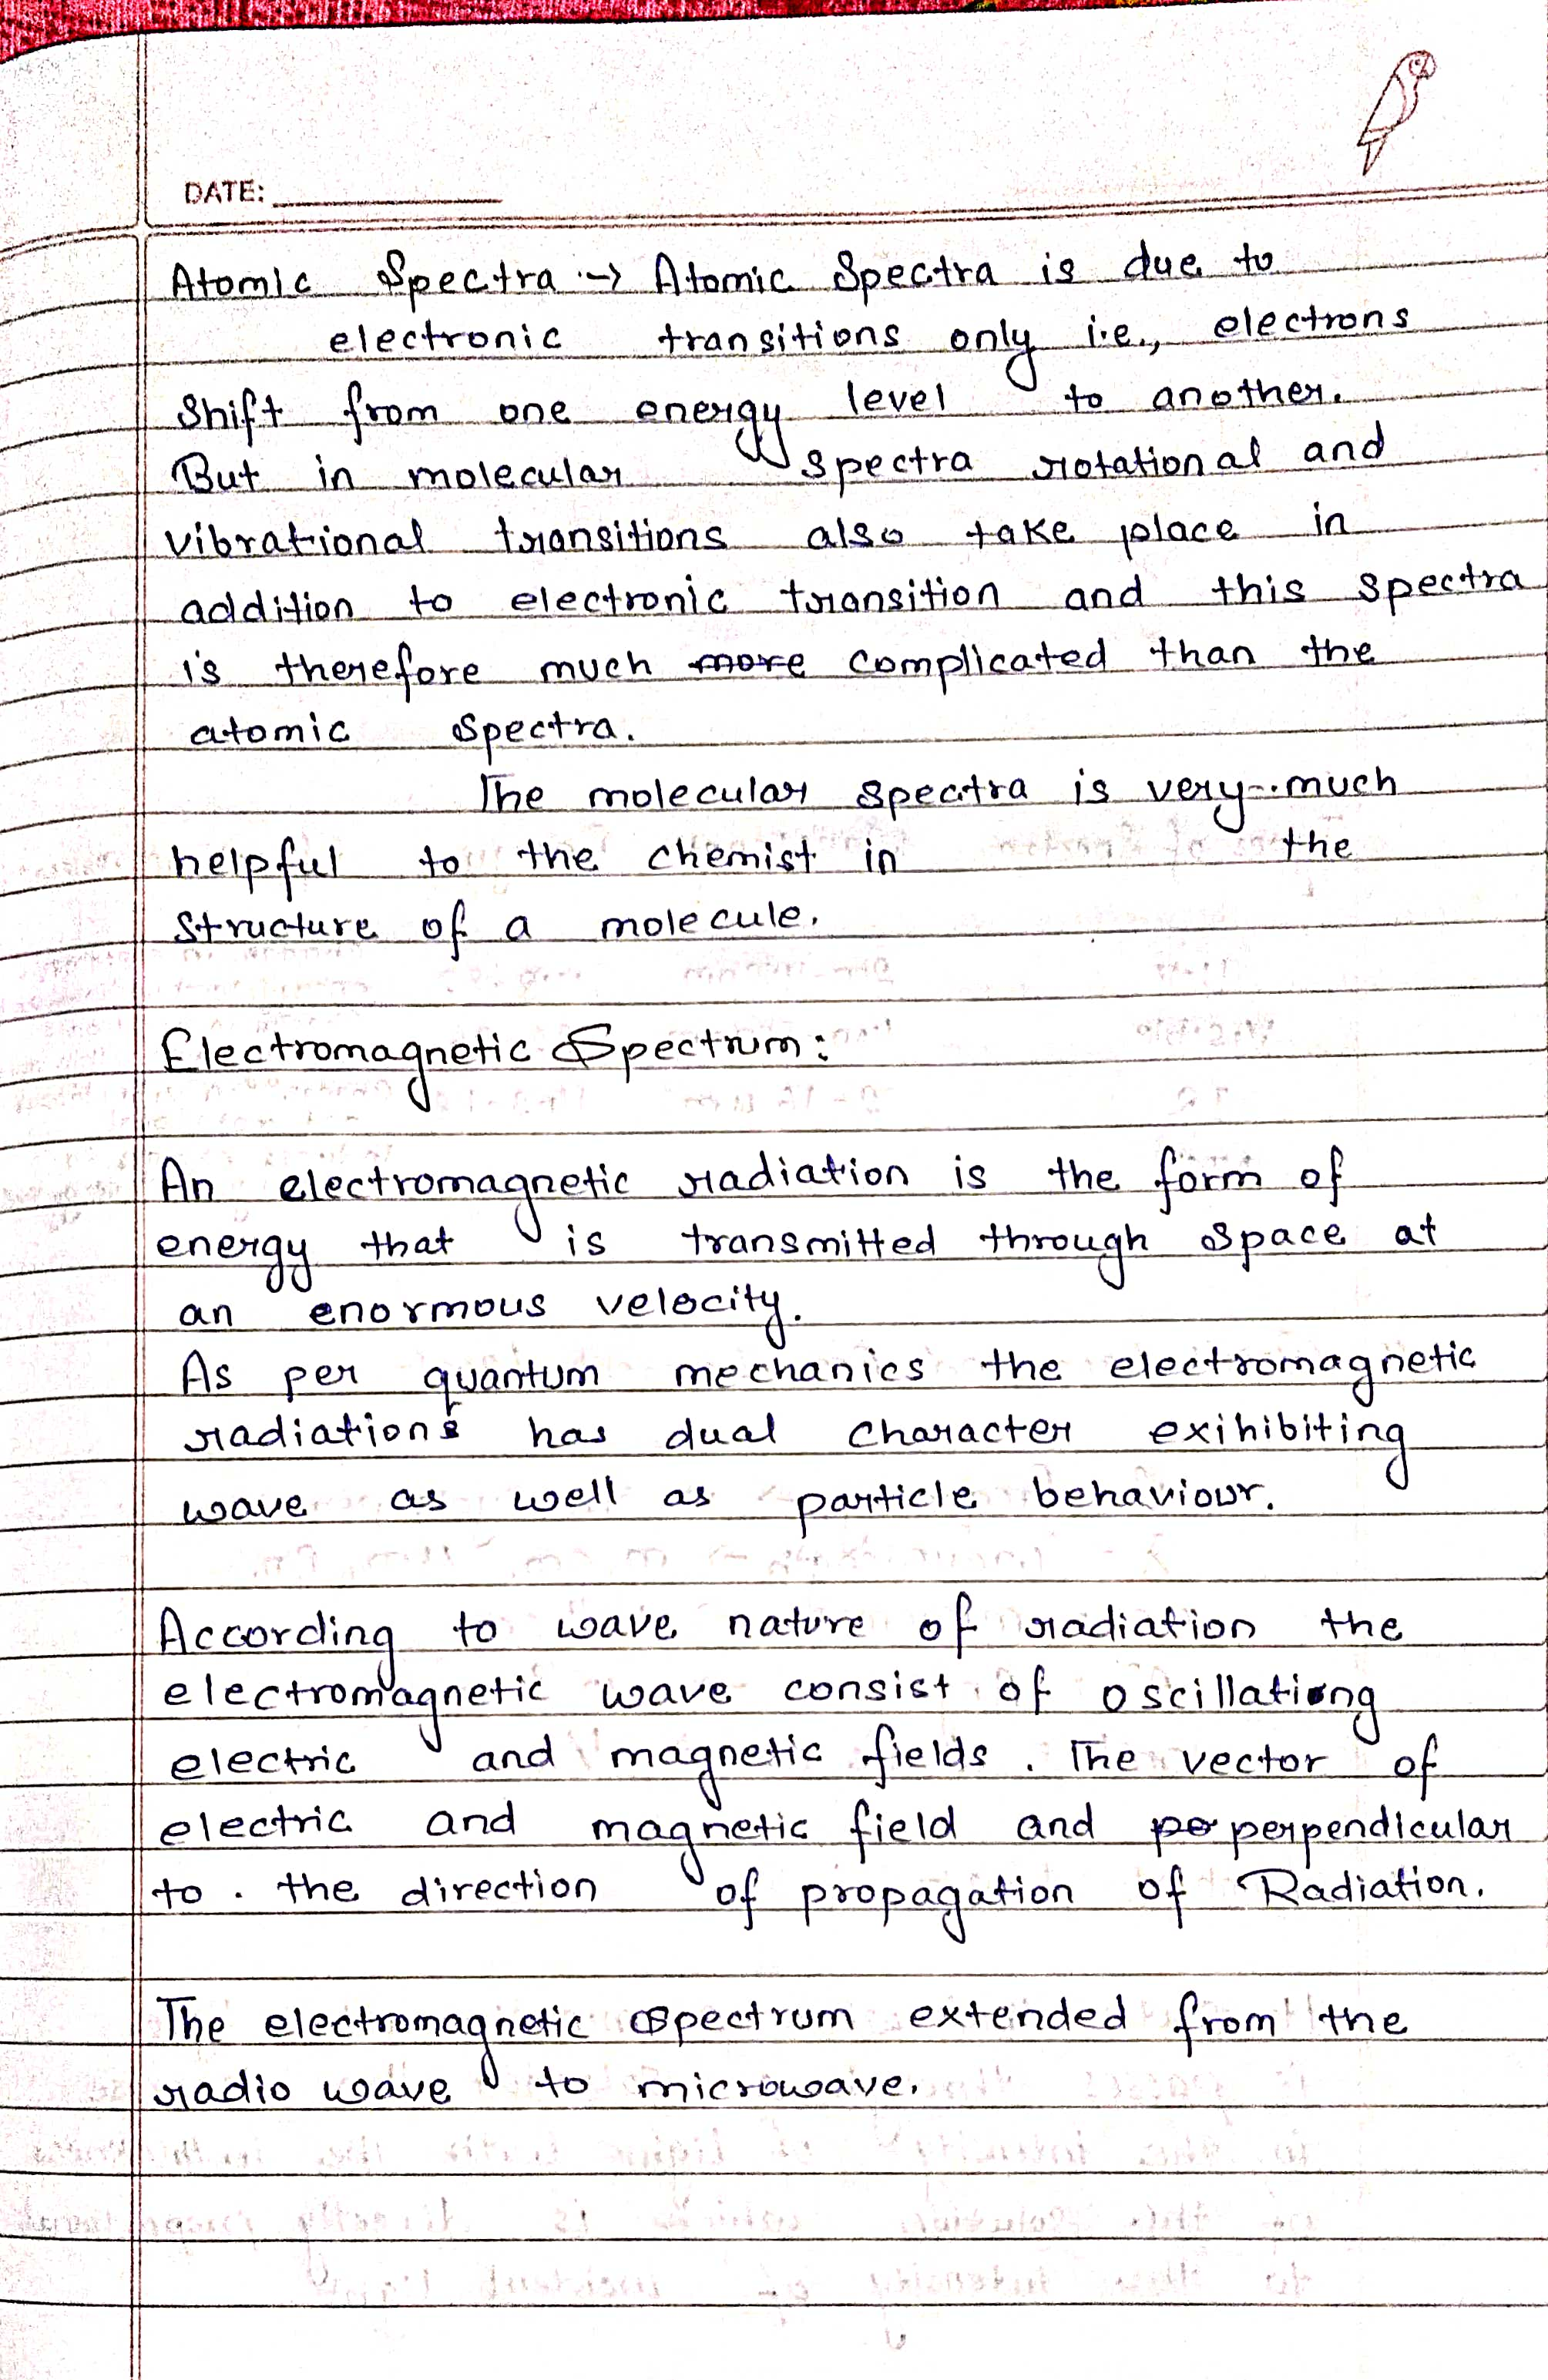 DATE:
Atomic Spectra :-> Atomic Spectra is due to
electronic transitions only i.e., electrons
Shift from one energy level to another.
But in molecular spectra rotational and
vibrational transitions also take place in
addition to electronic transition and this spectra
is therefore much more complicated than the
atomic spectra.
The molecular spectra is very much
helpful to the chemist in the
structure of a molecule.
Electromagnetic Spectrum:
An electromagnetic radiation is the form of
energy that is transmitted through space at
an enormous velocity.
As per quantum mechanics the electromagnetic
radiations has dual character exihibiting
wave as well as particle behaviour.
According to wave nature of radiation the
electromagnetic wave consist of oscillationg
electric and magnetic fields. The vector of
electric and magnetic field and pe perpendicular
to . the direction of propagation of Radiation.
The electromagnetic spectrum extended from the
radio wave to microwave.